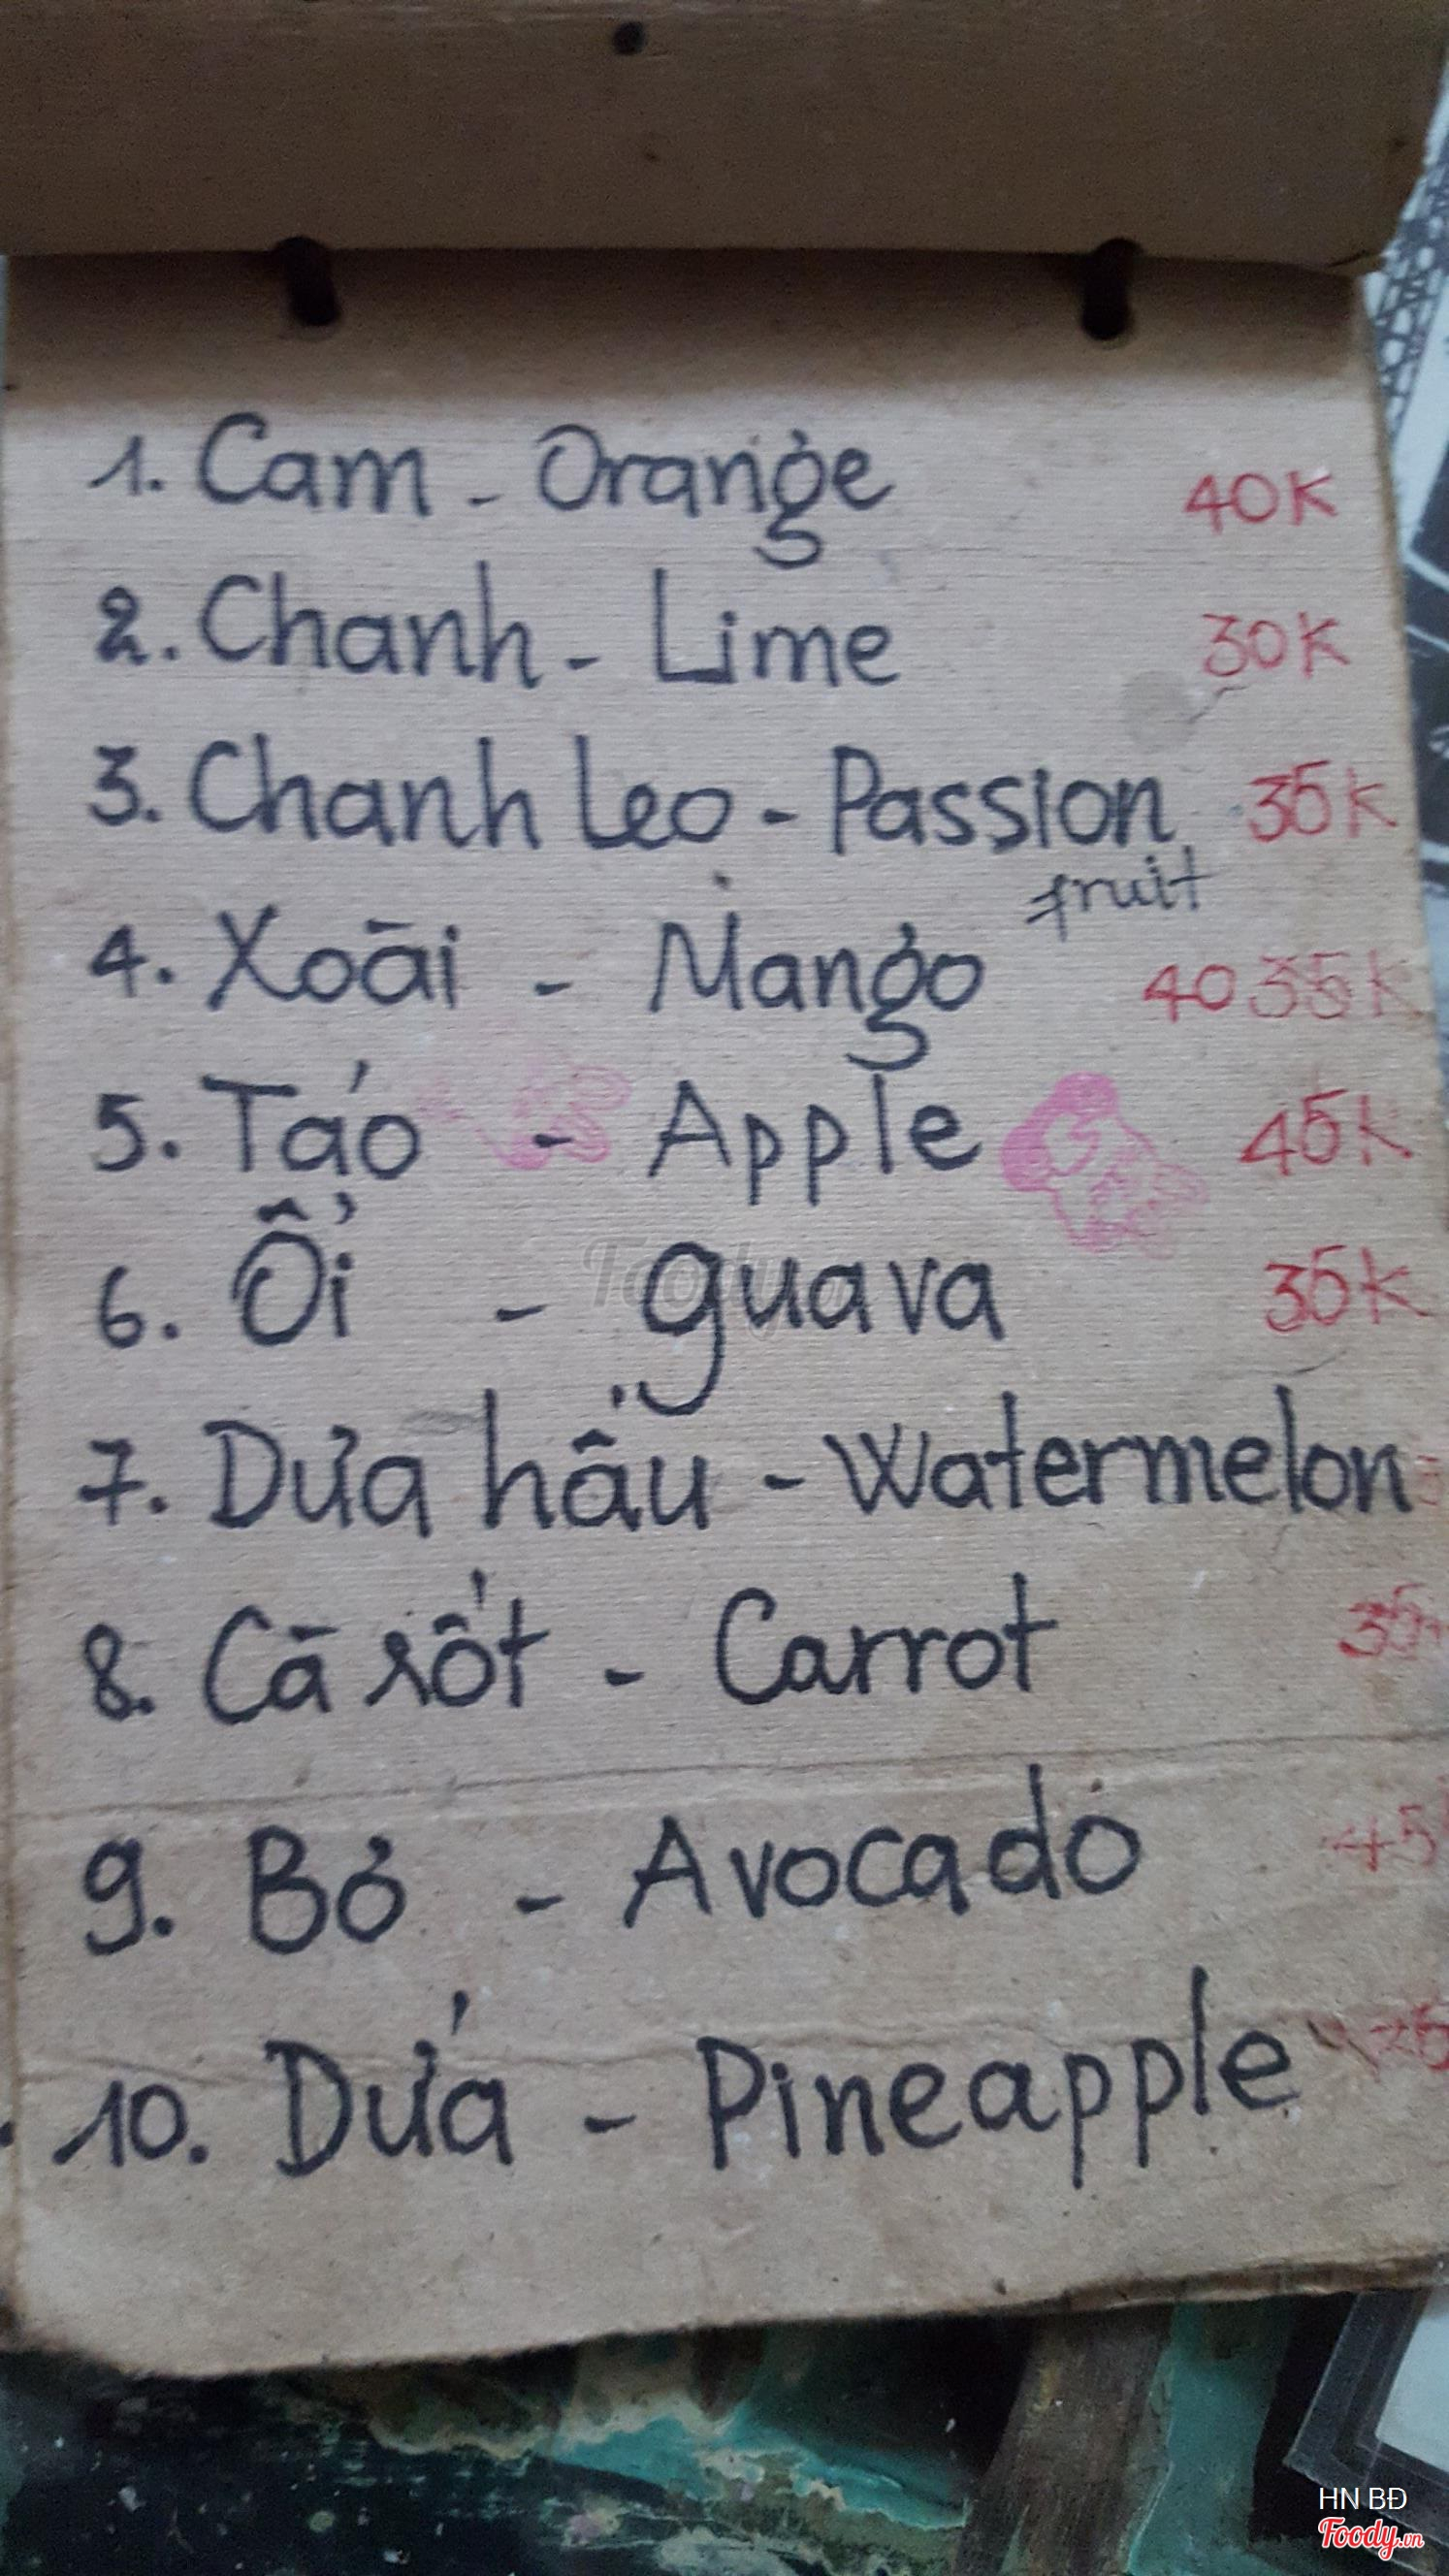 1. Cam - Orange 40K
2. Chanh - Lime 30K
3. Chanh leo - Passion 35K
fruit
4. Xoāi - Mango 40 35K
5. Táo - Apple 45K
6. Ổi - guava 35K
7. Dưa hấu - Watermelon
8. Cā rốt - Carrot 35
9. Bơ - Avocado 45
10. Dứa - Pineapple
Foody
HN BĐ
Foody.vn